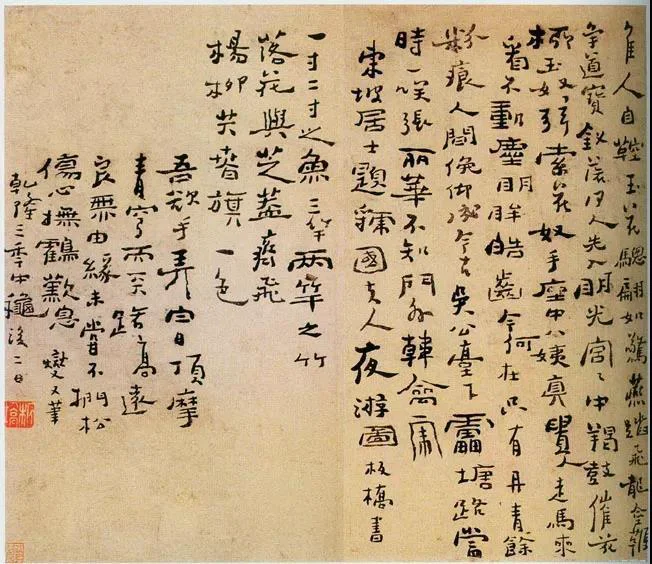 佳人自鞚玉花驄翩如驚燕踏飛龍金鞭
爭道寶釵落何人先入明光宮宮中羯鼓催花
柳玉奴弦索花奴手座中八姨真貴人走馬來
看不動塵明眸皓齒今何在只有丹青餘
粉痕人間俛仰成今古吳公臺下雷塘路當
時一咲張麗華不知門外韓禽虎
東坡居士題虢國夫人夜游圖 板橋書
一寸二寸之魚三竿兩竿之竹
落花與芝蓋齊飛
楊柳共春旗一色
吾欲手弄白日頂摩
青穹而天路高遠
良無由緣未嘗不捫松
傷心撫鶴歎息 燮又筆
乾隆三年中穐後二日